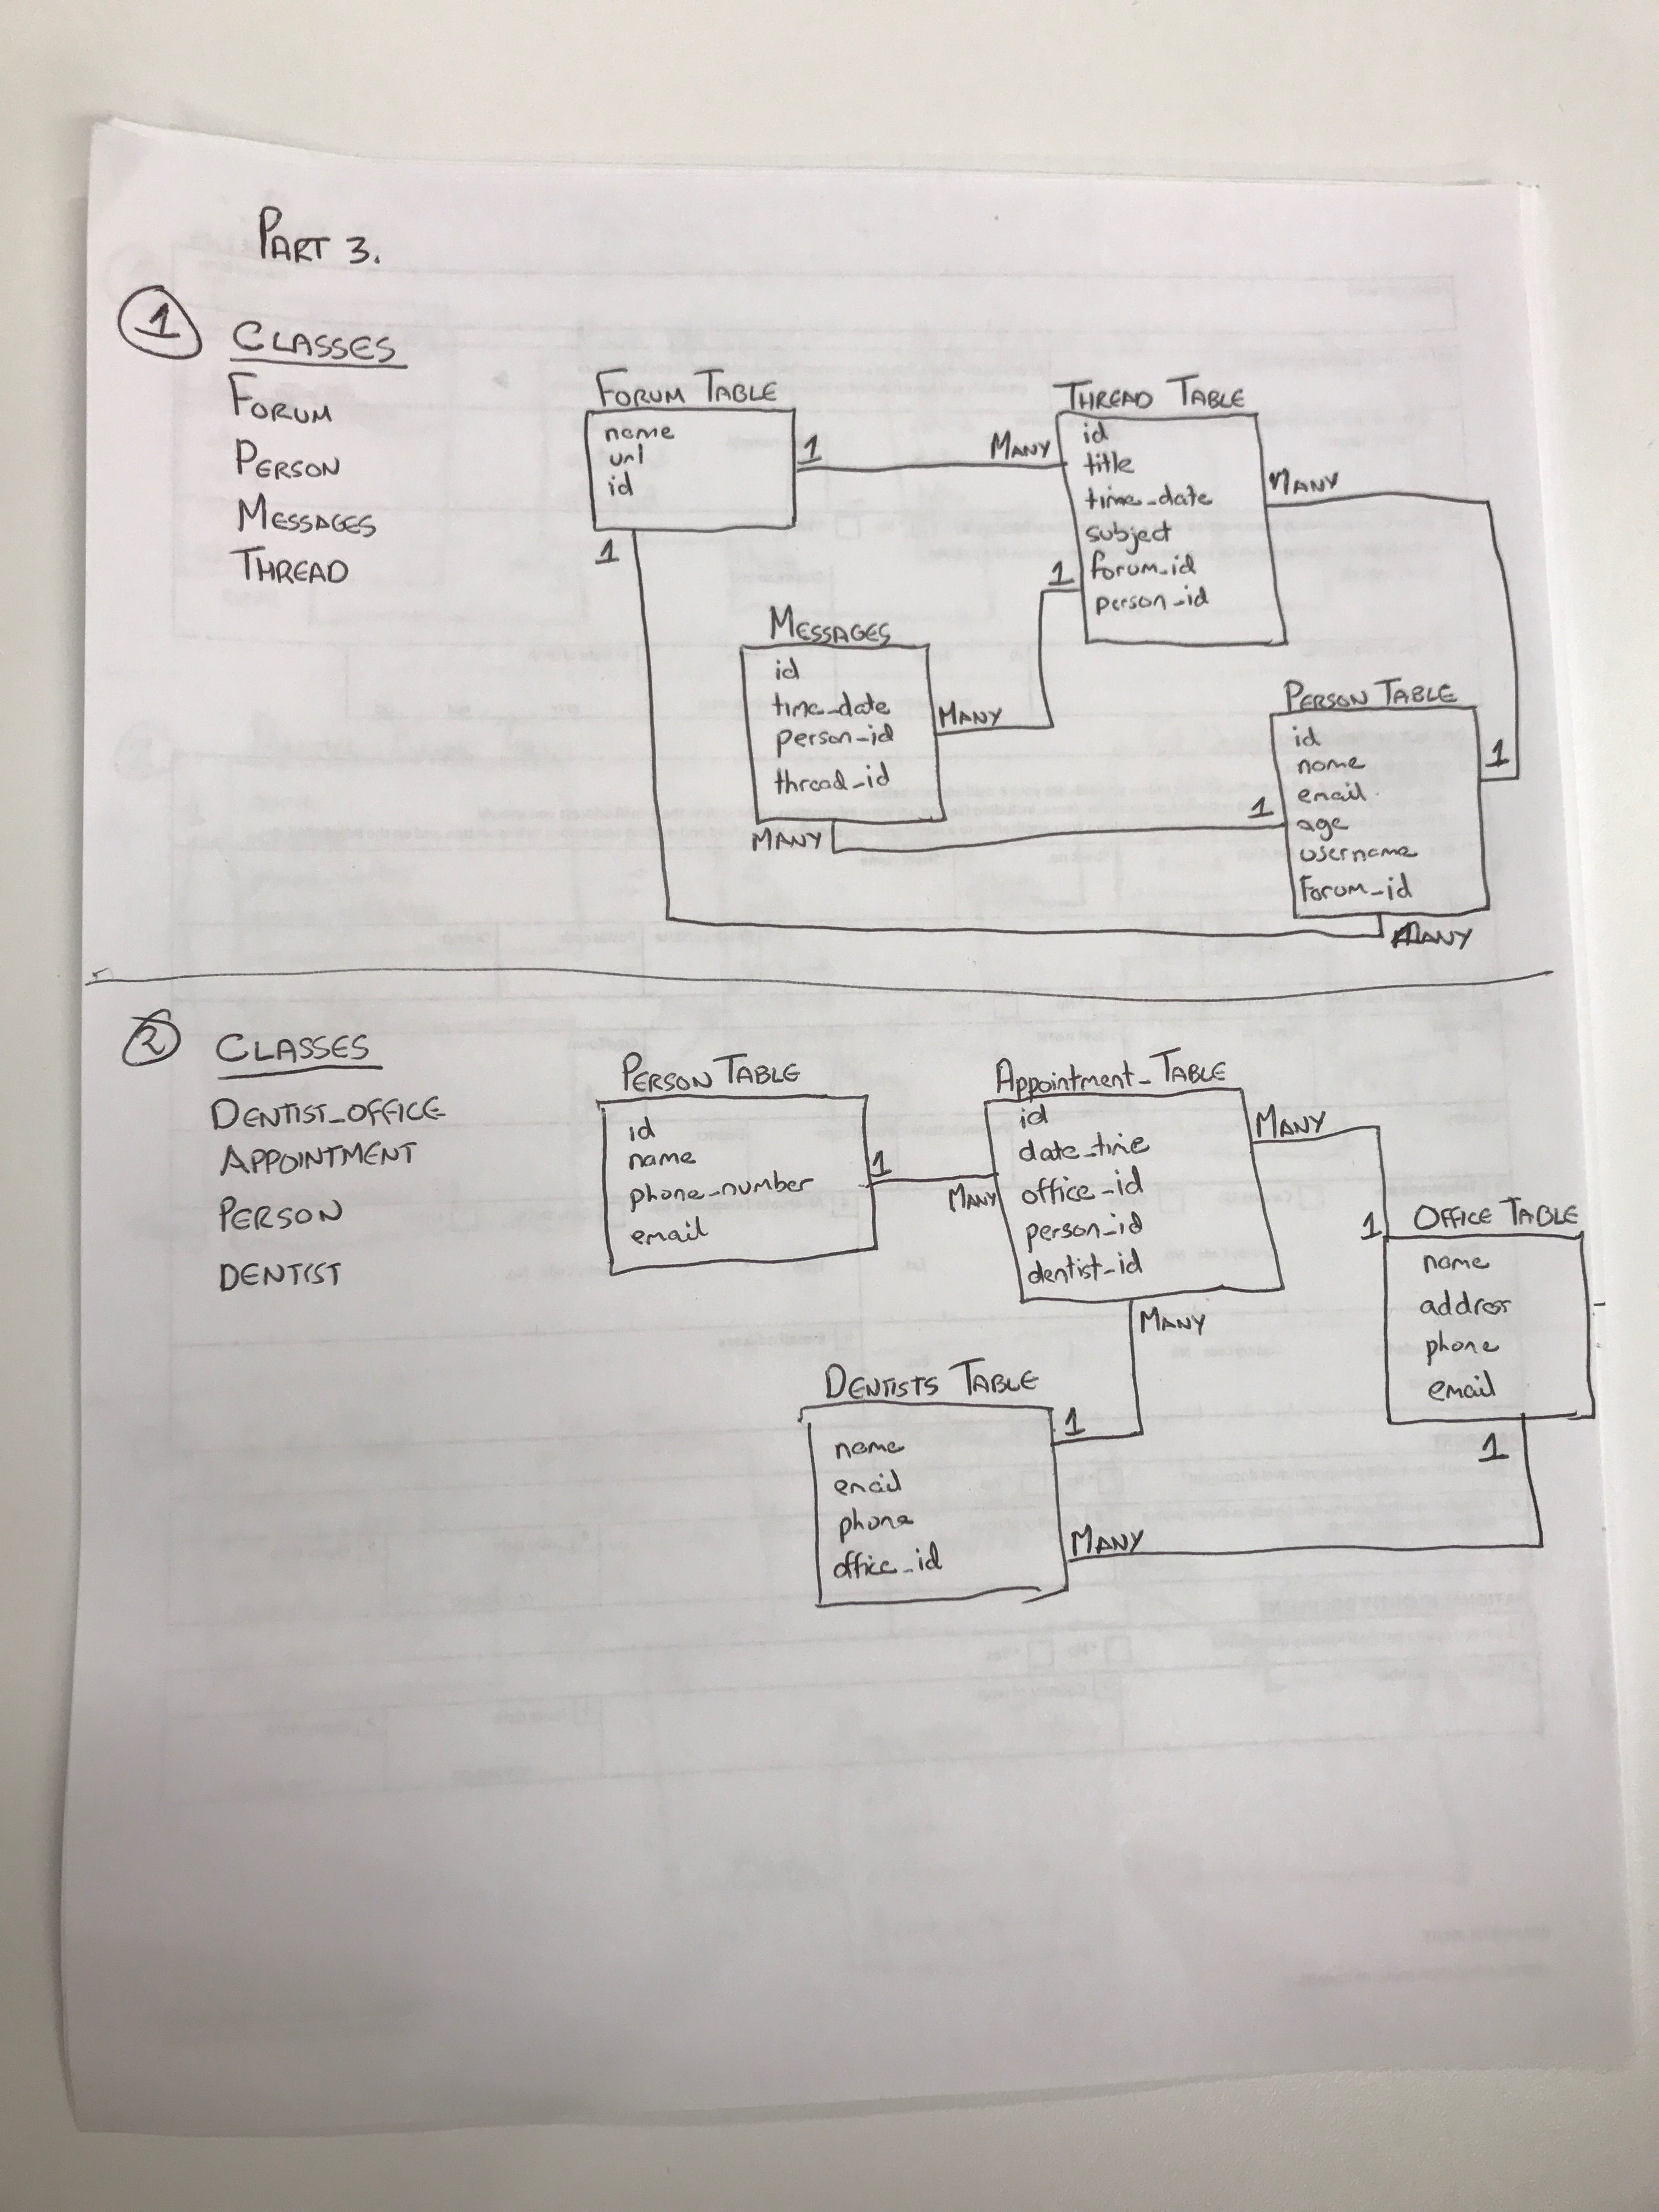 PART 3.
1
CLASSES
FORUM
PERSON
MESSAGES
THREAD
FORUM TABLE
name
url
id
1
1
MANY
THREAD TABLE
id
title
time_date
subject
forum_id
person_id
MANY
1
MESSAGES
id
time_date
person_id
thread_id
MANY
MANY
PERSON TABLE
id
name
email
age
username
Forum_id
1
1
MANY
2
CLASSES
DENTIST_OFFICE
APPOINTMENT
PERSON
DENTIST
PERSON TABLE
id
name
phone_number
email
1
MANY
Appointment_TABLE
id
date_time
office_id
person_id
dentist_id
MANY
MANY
1
OFFICE TABLE
name
address
phone
email
1
DENTISTS TABLE
name
email
phone
office_id
1
MANY